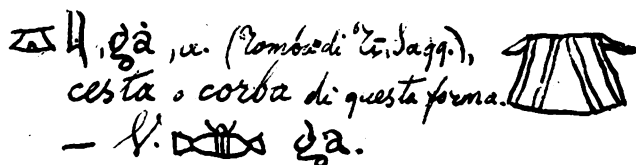 , gȧ, (Tomba di Ti, Saqq.),
cesta o corba di questa forma.
— V. gȧ.